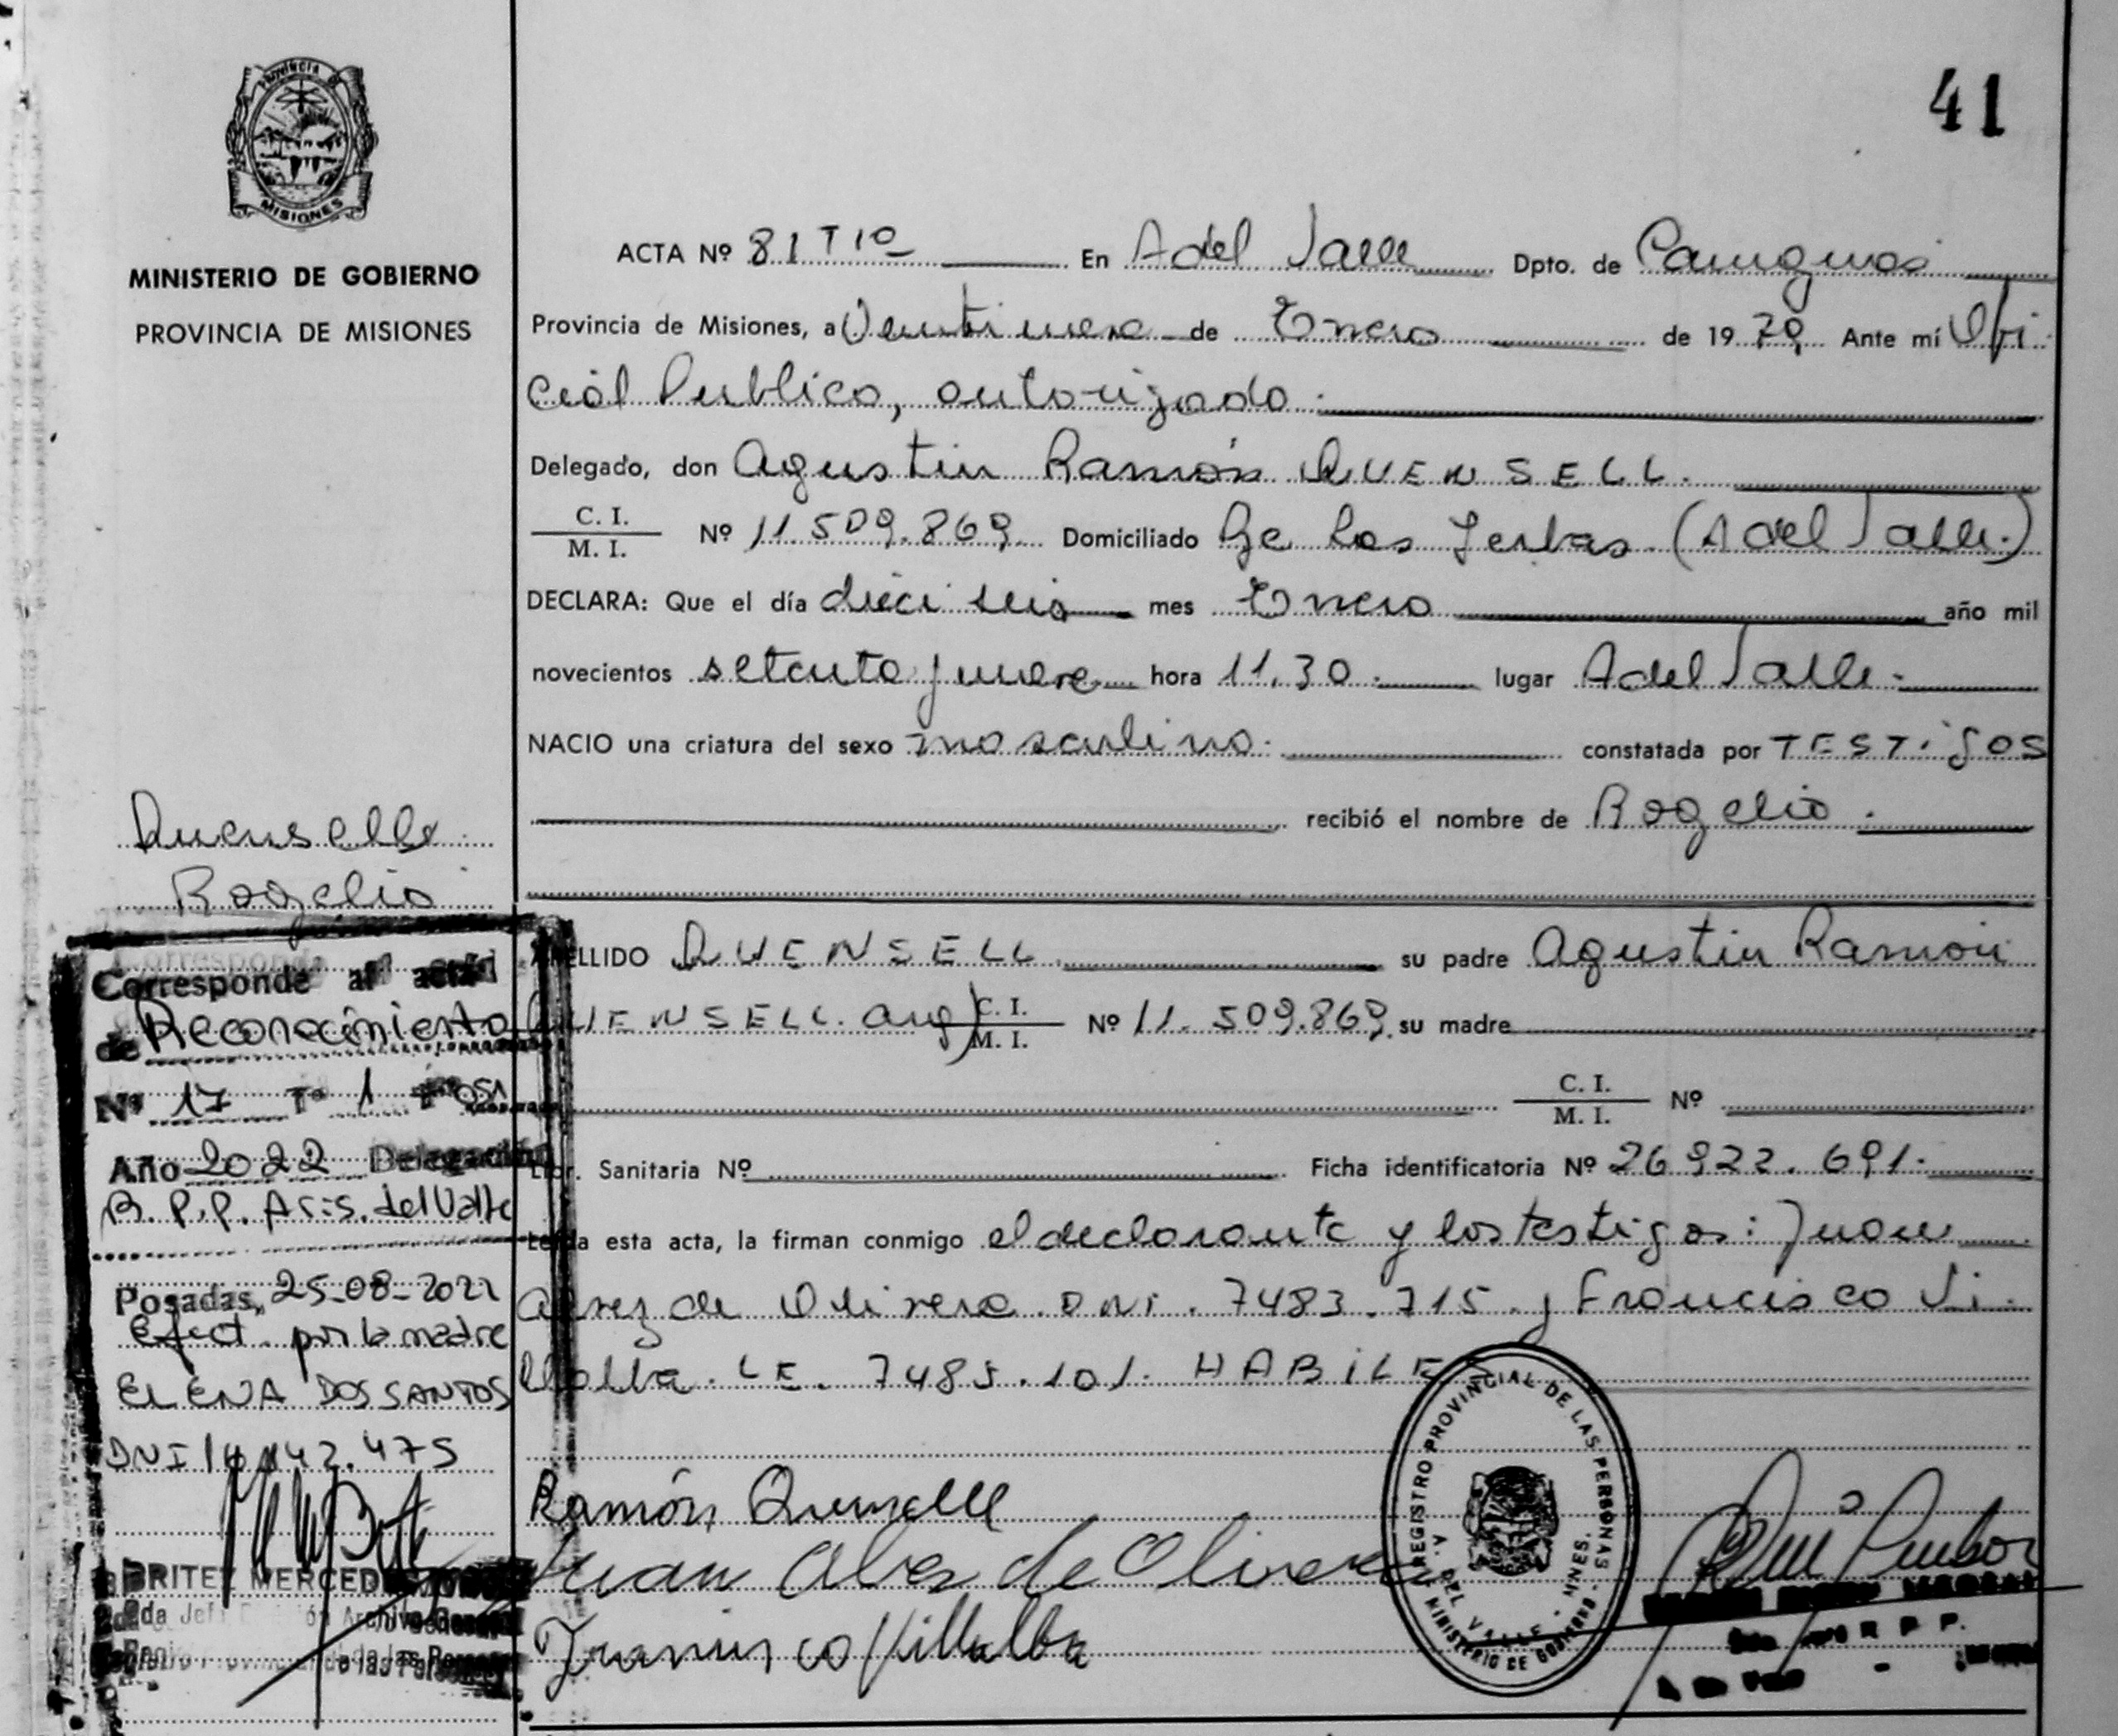 41
PROVINCIA DE
MISIONES
MINISTERIO DE GOBIERNO
PROVINCIA DE MISIONES
ACTA Nº 81 Tº 1º En A del Valle Dpto. de Cainguas
Provincia de Misiones, a Veintinueve de Enero de 1979 Ante mí Ofi
cial Publico, autorizado.
Delegado, don Agustin Ramón QUENSELL.
C. I.
M. I. Nº 11.509.869 Domiciliado Ge Las Yerbas (A del Valle.)
DECLARA: Que el día dieci seis mes Enero año mil
novecientos setenta y nueve hora 11.30. lugar A del Valle.
NACIO una criatura del sexo masculino. constatada por TESTigos
recibió el nombre de Rogelio.
Quenselle
Rogelio
APELLIDO QUENSELL su padre Agustin Ramon
QUENSELL. arg) C. I.
M. I. Nº 11.509.869. su madre
C. I.
M. I. Nº
Libr. Sanitaria Nº Ficha identificatoria Nº 26.922.691.
Leída esta acta, la firman conmigo el declarante y los testigos: Juan
Alvez de Olivera DNI. 7483.715 y Francisco Vi
llalba. LE. 7485.101. HABILES
Corresponde al acta
de Reconocimiento
Nº 17 Tº 1 Fº 051
Año 2022 Delegación
R. P. P. Aris. del Valle
Posadas, 25-08-2022
Efect. por la madre
ELENA DOS SANTOS
DNI
BRITEZ MERCEDES
Archivo General
de las Personas
Ramón Quenselle
Juan Alves de Olivera
Francisco Villalba
REGISTRO PROVINCIAL DE LAS PERSONAS
A. DEL VALLE - MNES.
MINISTERIO DE GOBIERNO
R P P.